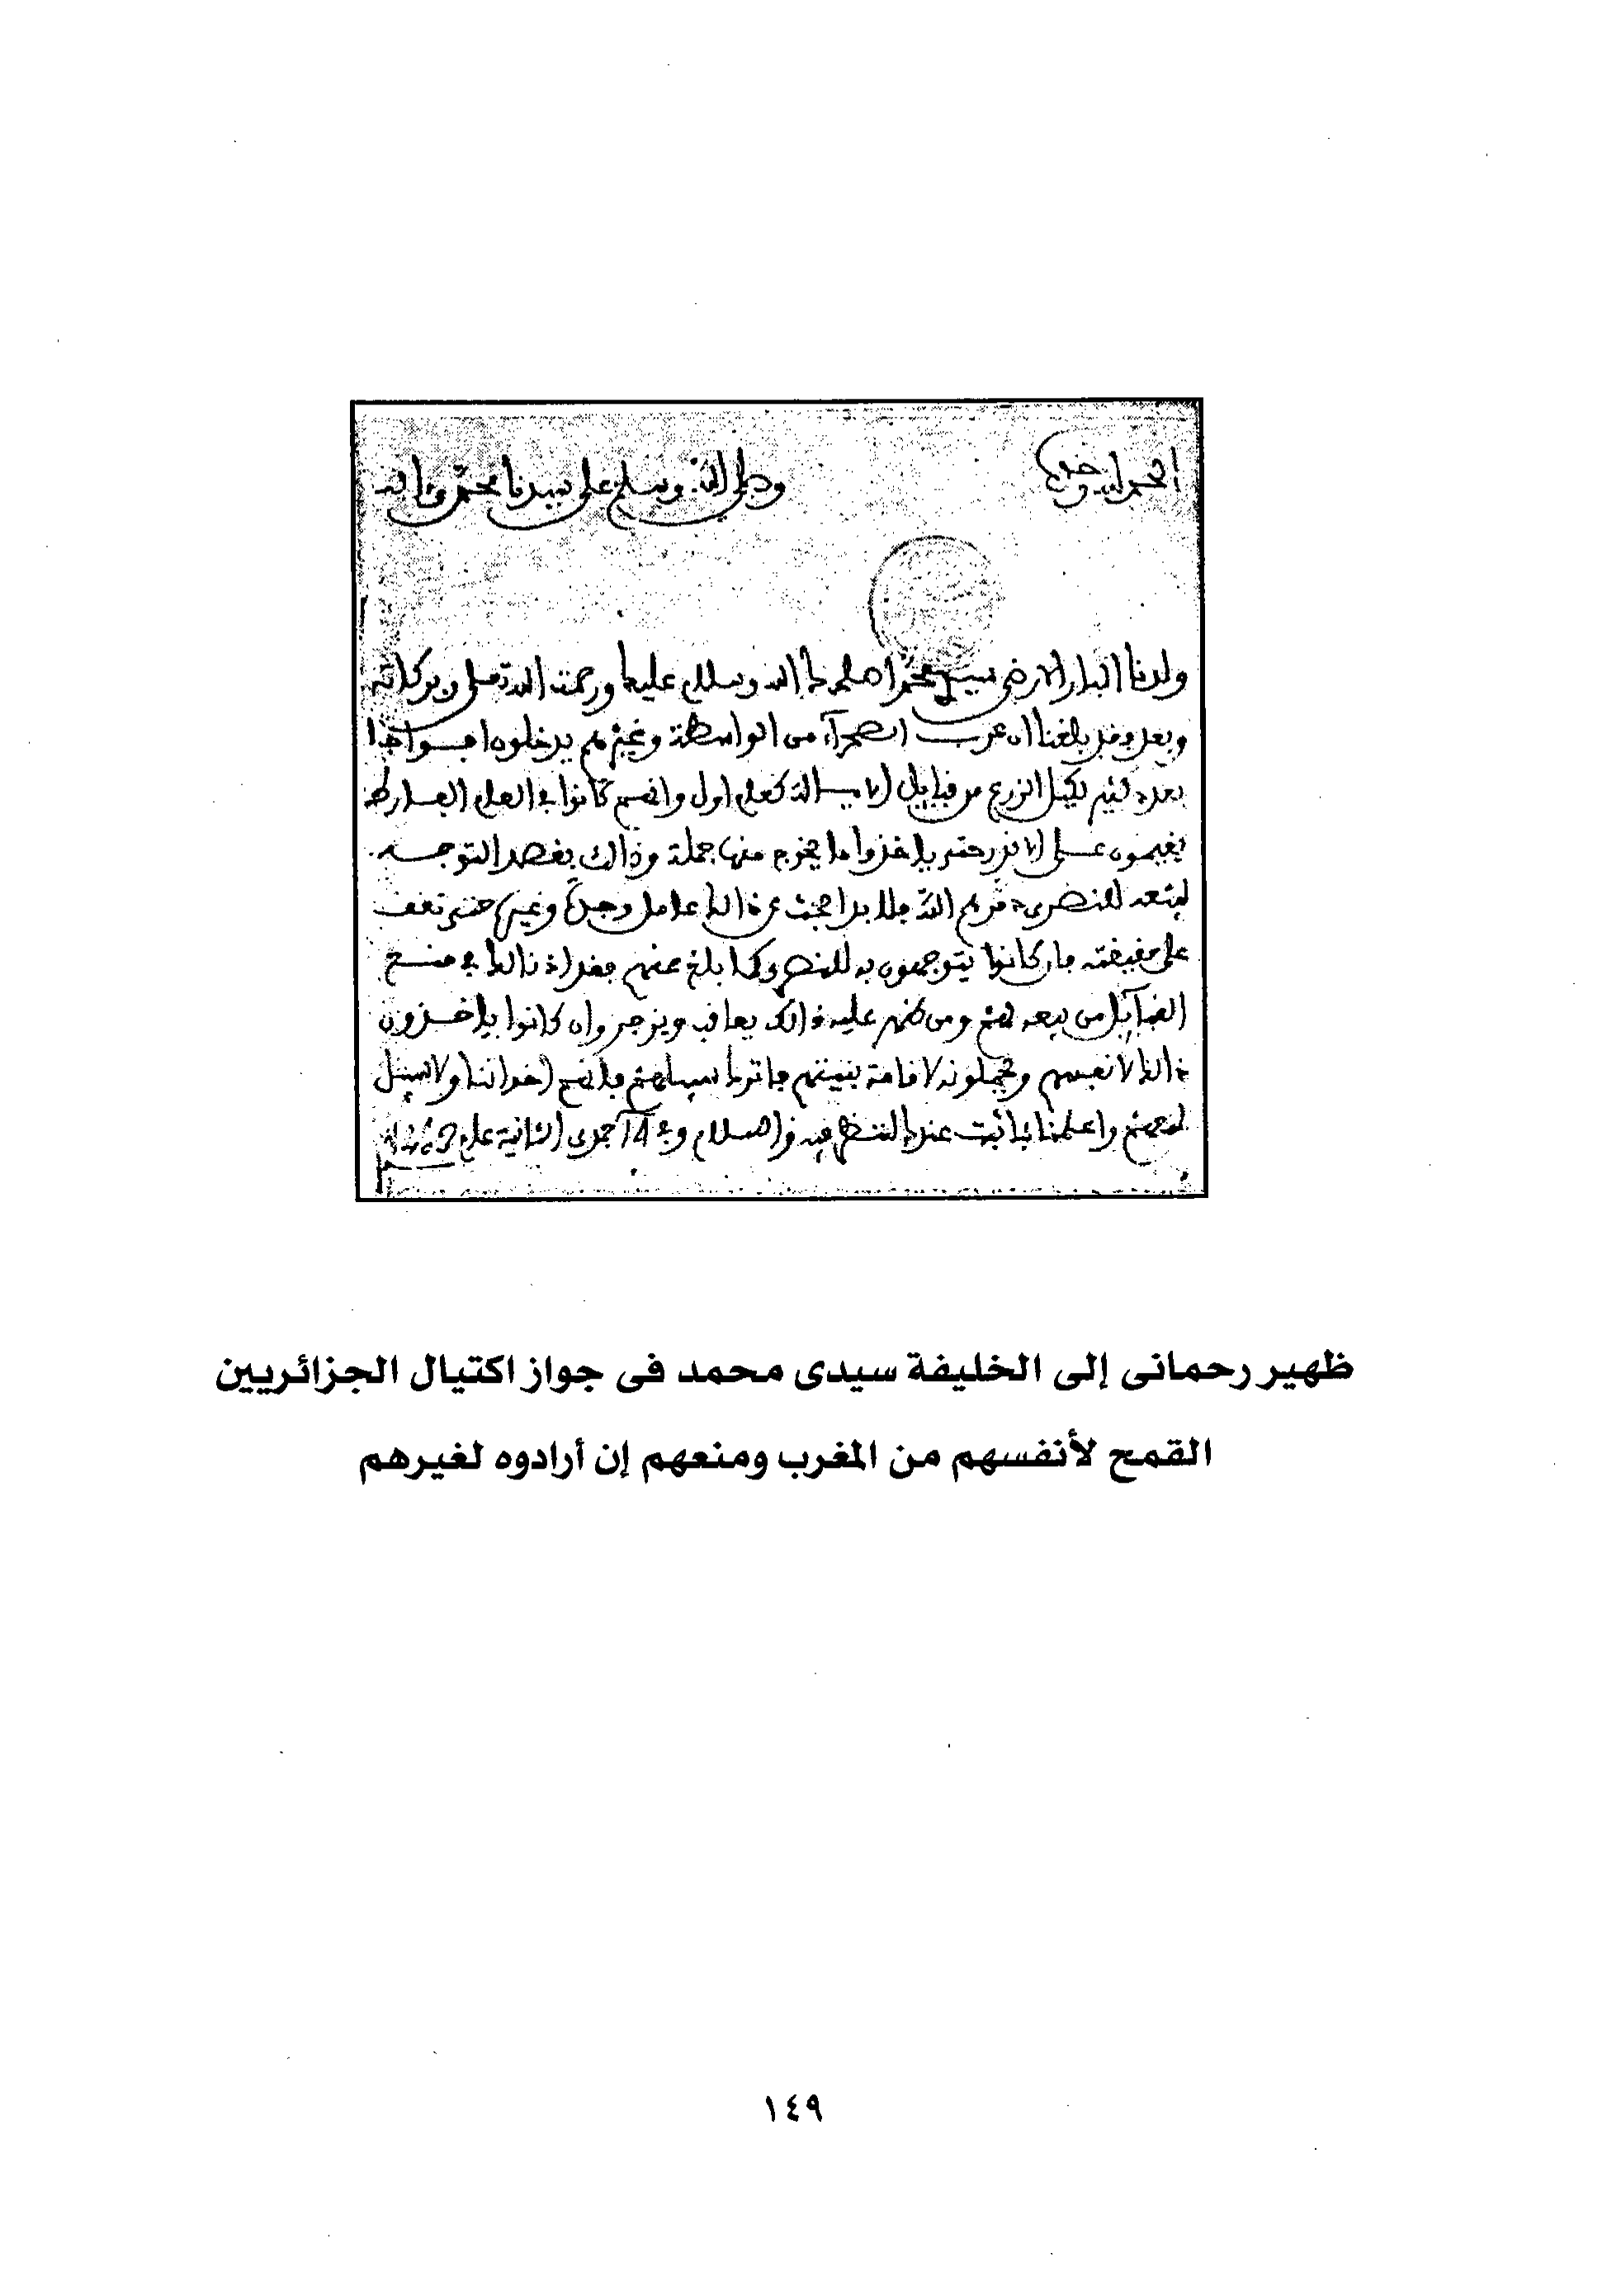 الحمد لله وحده
وصلى الله وسلم على سيدنا محمد وءاله
ولدنا البار الارضى سيدي محمد اصلحك الله وسلام عليك ورحمت الله تعلى وبركاته
وبعد وقد بلغنا ان عرب الصحراء من الواسطة وغيرهم يدخلون افواجا
بعده ليكيل الزرع من قبايل كعام اول وانهم كانوا في العام الفارط
يقيمون على حتى ياخذوا ما يخرج منها جملة وذالك بقصد التوجه
لبيعه للنصرى دمرهم الله فلا بد ابحث عن ذالك عامل وجدة وغيره حتى تقف
على حقيقته فان كانوا يتوجهون به للنصرى كما بلغ عنهم فقد اذنالك في منع
القبايل من بيعه لهم ومن ظهر عليه ذالك يعاقب ويزجر وان كانوا ياخذون
ذالك لانفسهم ويحملونه لاقامة بنيتهم فاترك سبيلهم فانهم اخواننا ولا سبيل
لمنعهم واعلمنا بما ثبت عندك لنظر فيه والسلام وفي 14 جمدى الثانية عام
ظهير رحمانى إلى الخليفة سيدى محمد فى جواز اكتيال الجزائريين
القمح لأنفسهم من المغرب ومنعهم إن أرادوه لغيرهم
١٤٩